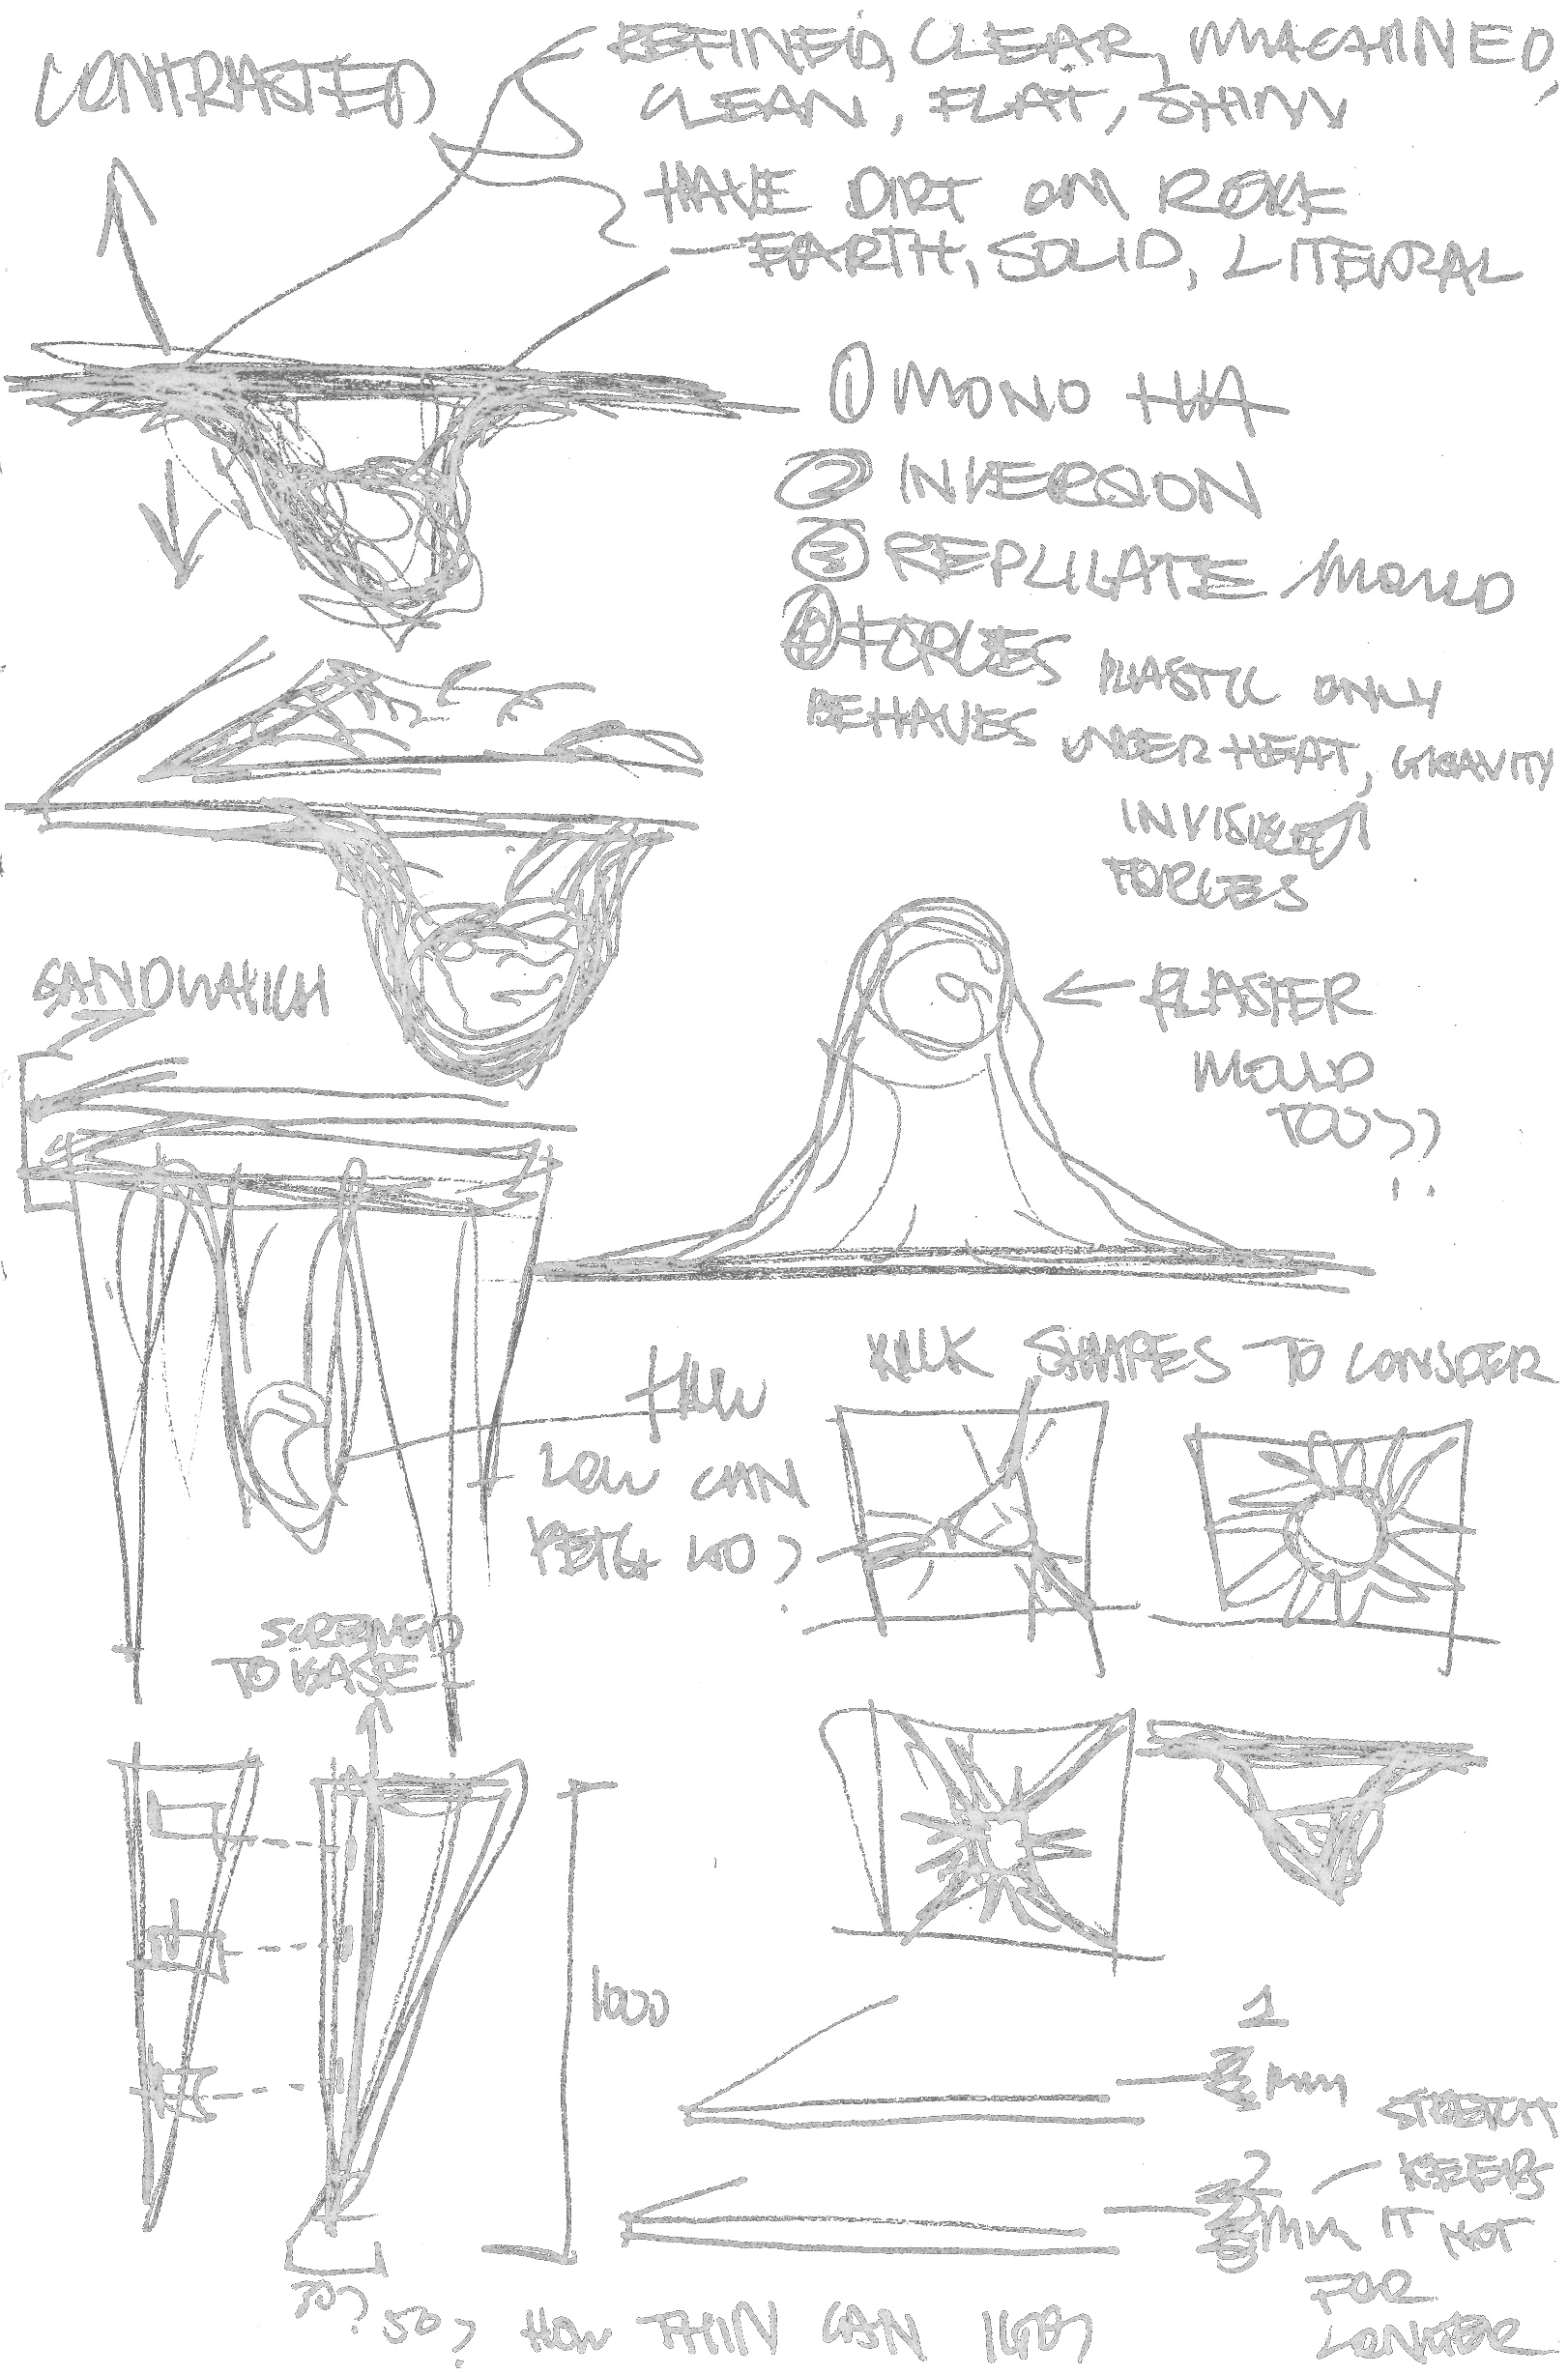 CONTRASTED
REFINED, CLEAR, MACHINED,
CLEAN, FLAT, SHINY
HAVE DIRT ON ROCK
– EARTH, SOLID, LITERAL
① MONO HA
② INVERSION
③ REPLICATE MOULD
④ FORCES
PLASTIC ONLY
BEHAVES UNDER HEAT, GRAVITY
INVISIBLE
FORCES
SANDWICH
← PLASTER
MOULD
TOO??
HOW
LOW CAN
PETG GO?
SHAPES TO CONSIDER
SCREWED
TO BASE
1000
1
mm
2
mm
STRETCH
– KEEPS
IT HOT
FOR
LONGER
30?
50?
HOW THIN CAN I GO?